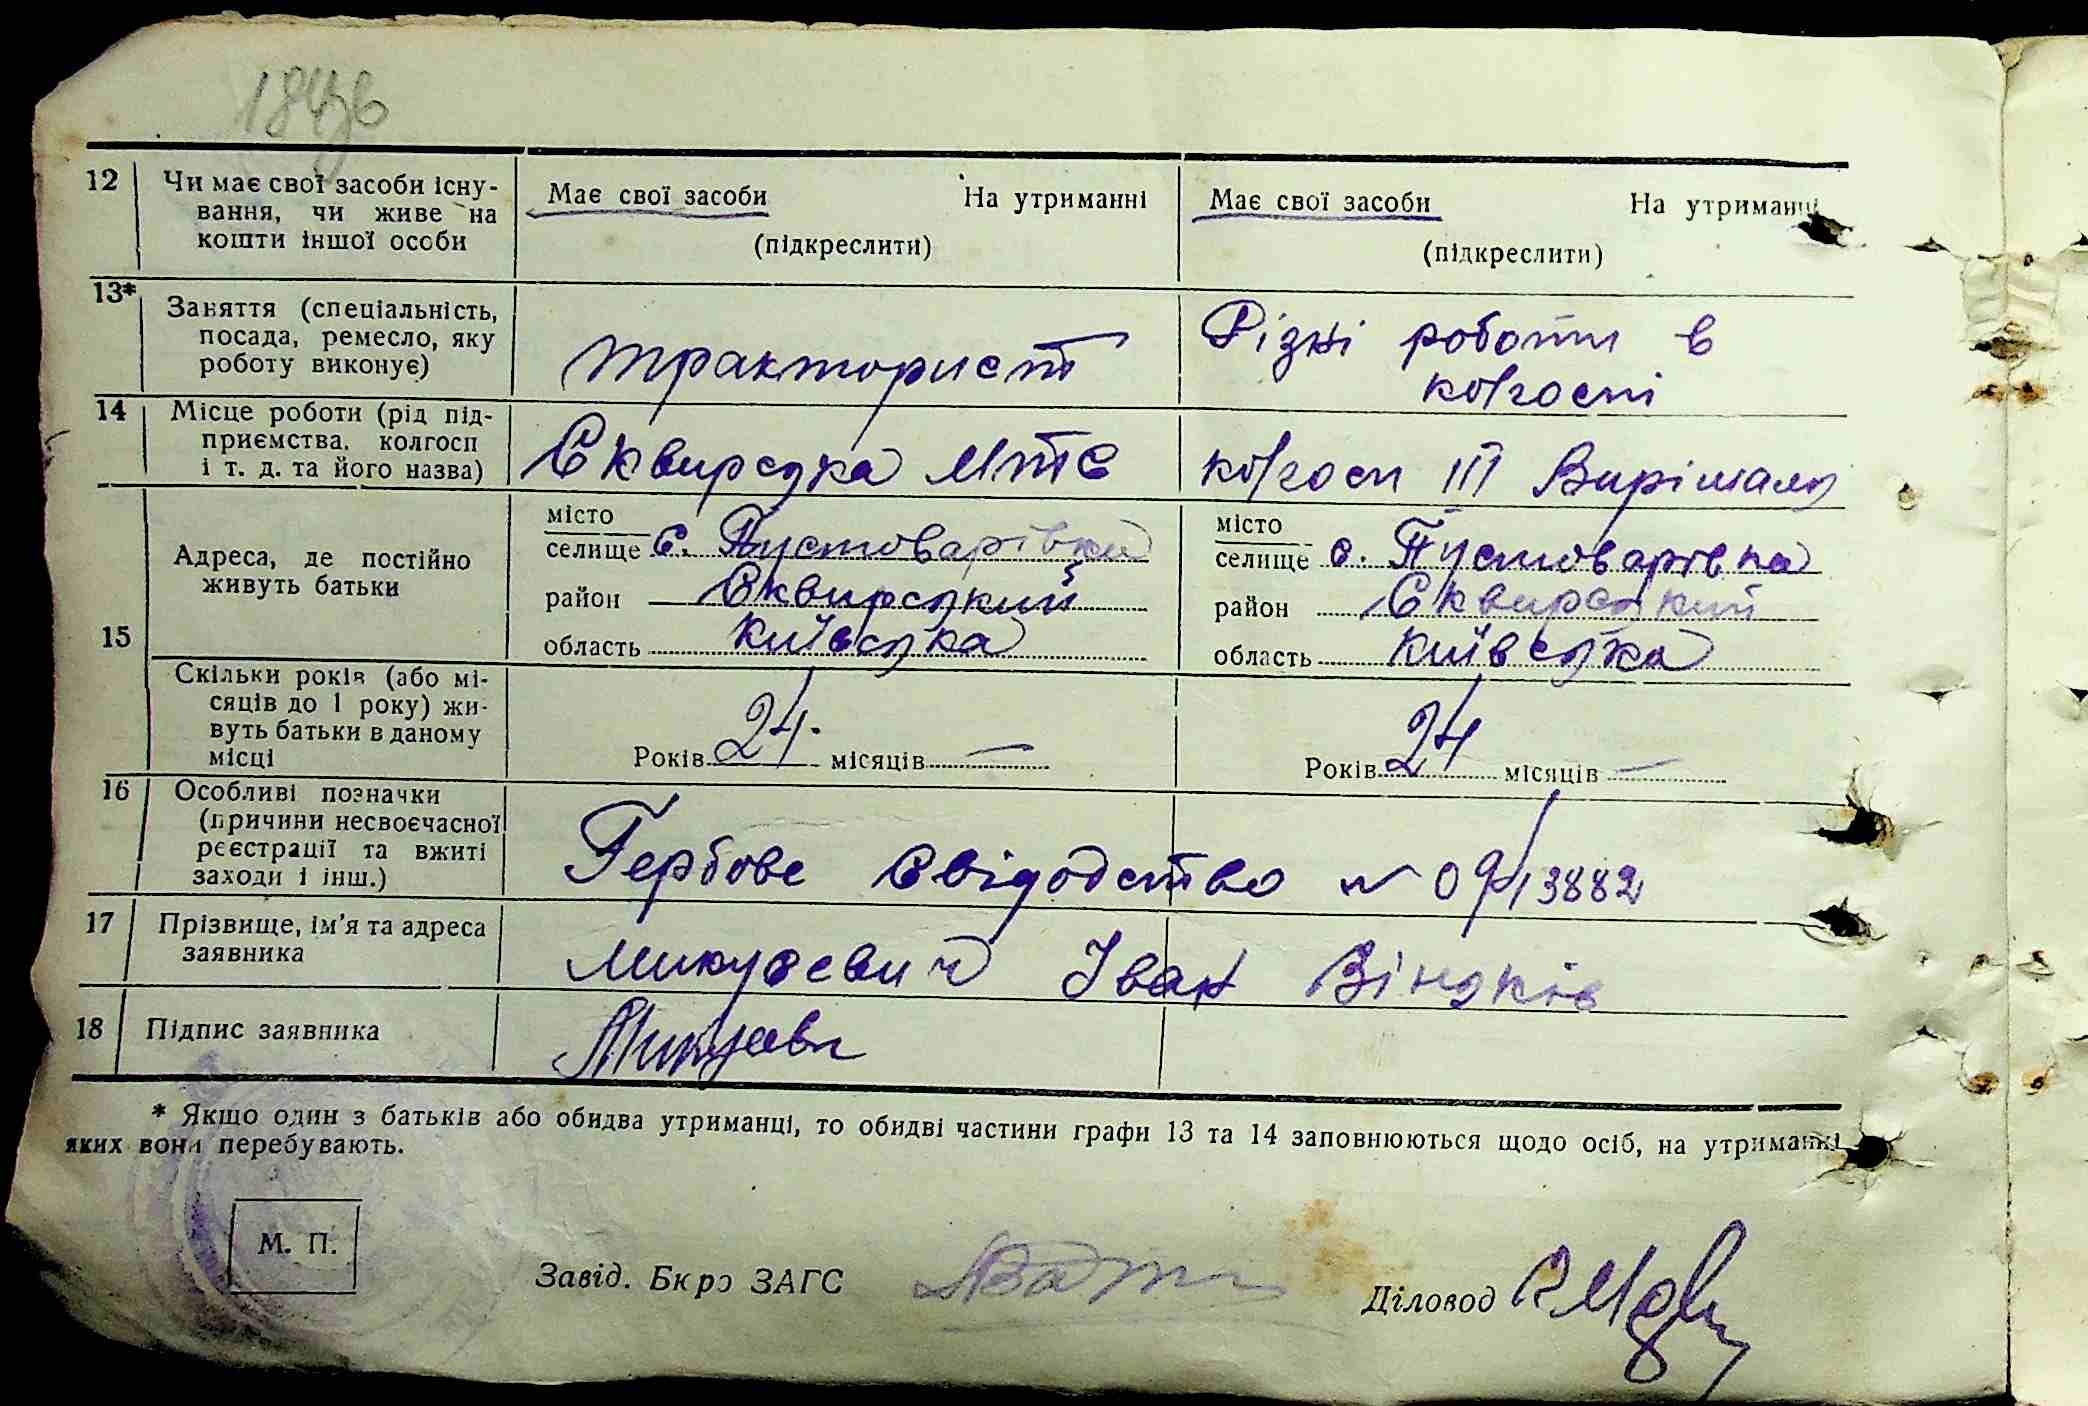 12 Чи має свої засоби існу-
вання, чи живе на
кошти іншої особи
Має свої засоби На утриманні
(підкреслити)
Має свої засоби На утриманні
(підкреслити)
13* Заняття (спеціальність,
посада, ремесло, яку
роботу виконує)
тракторист
Різні роботи в
колгоспі
14 Місце роботи (рід під-
приємства, колгосп
і т. д. та його назва)
Сквирська МТС
колгосп ІІІ Вирішальн
15 Адреса, де постійно
живуть батьки
місто
селище с. Пустоварівка
район Сквирський
область Київська
місто
селище с. Пустоварівка
район Сквирський
область Київська
Скільки років (або мі-
сяців до 1 року) жи-
вуть батьки в даному
місці
Років 24. місяців —
Років 24 місяців —
16 Особливі позначки
(причини несвоєчасної
реєстрації та вжиті
заходи і інш.)
Гербове свідодство № 09/13882
17 Прізвище, ім'я та адреса
заявника
Іван
18 Підпис заявника
* Якщо один з батьків або обидва утриманці, то обидві частини графи 13 та 14 заповнюються щодо осіб, на утриманні
яких вони перебувають.
М. П.
Завід. Бюро ЗАГС
Діловод